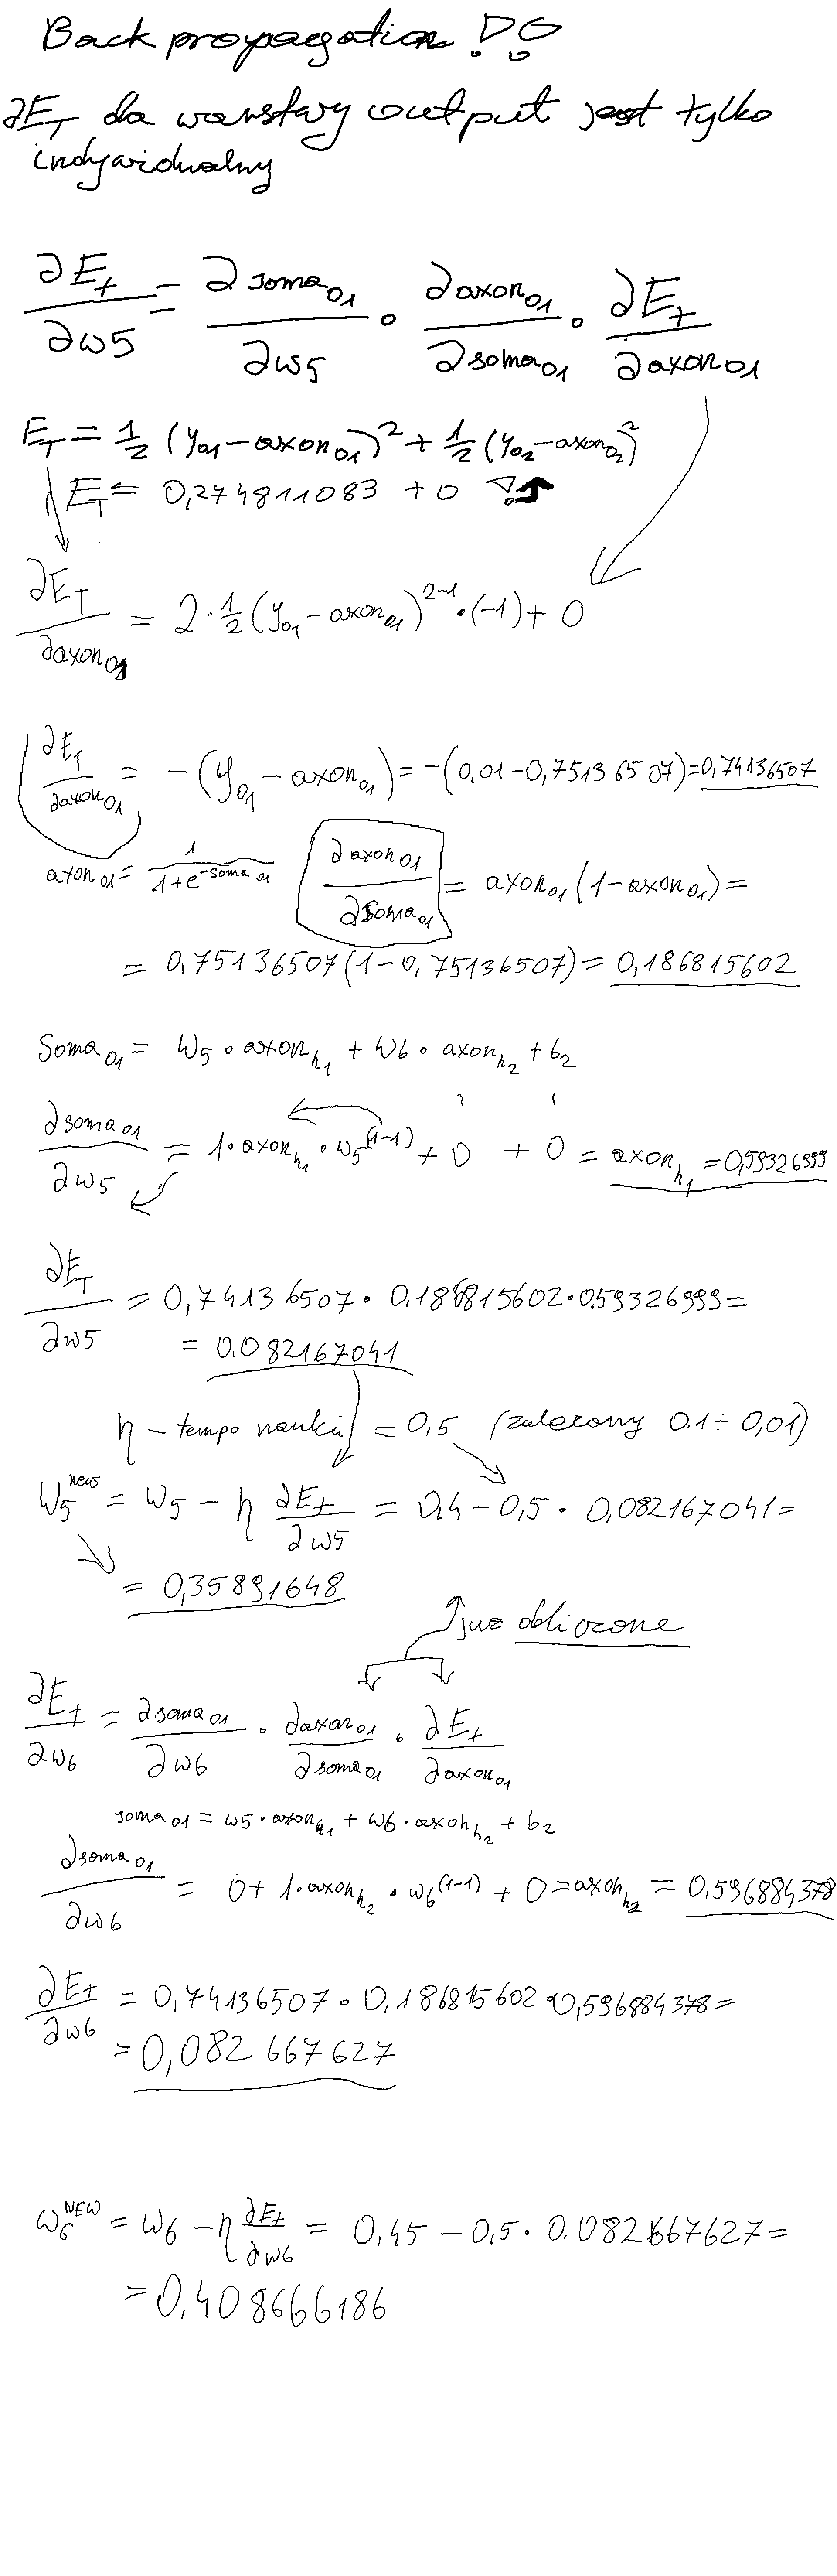 Backpropagation !!
∂E_T da warstwy output jest tylko
indywidualny
∂E_t/∂w5 = ∂soma_01/∂w5 · ∂axon_01/∂soma_01 · ∂E_t/∂axon_01
E_T = 1/2 (y_01 - axon_01)^2 + 1/2 (y_02 - axon_02)^2
E_T = 0,274811083 + 0 !
∂E_T/∂axon_01 = 2 · 1/2 (y_01 - axon_01)^(2-1) · (-1) + 0
∂E_T/∂axon_01 = -(y_01 - axon_01) = -(0,01 - 0,75136507) = 0,74136507
axon_01 = 1/(1+e^(-soma_01)) ∂axon_01/∂soma_01 = axon_01 (1 - axon_01) =
= 0,75136507 (1 - 0,75136507) = 0,186815602
Soma_01 = w5 · axon_h1 + w6 · axon_h2 + b2
∂soma_01/∂w5 = 1 · axon_h1 · w5^(1-1) + 0 + 0 = axon_h1 = 0,59326999
∂E_T/∂w5 = 0,74136507 · 0,186815602 · 0.59326999 =
= 0.082167041
η - tempo nauki = 0,5 (zalecony 0.1 ÷ 0,01)
w5^new = w5 - η ∂E_t/∂w5 = 0,4 - 0,5 · 0,082167041 =
= 0,35891648
już obliczone
∂E_t/∂w6 = ∂soma_01/∂w6 · ∂axon_01/∂soma_01 · ∂E_t/∂axon_01
soma_01 = w5 · axon_h1 + w6 · axon_h2 + b2
∂soma_01/∂w6 = 0 + 1 · axon_h2 · w6^(1-1) + 0 = axon_h2 = 0,596884378
∂E_t/∂w6 = 0,74136507 · 0,186815602 · 0,596884378 =
= 0,082667627
w6^NEW = w6 - η ∂E_t/∂w6 = 0,45 - 0,5 · 0.082667627 =
= 0,408666186